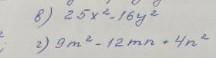 в) 25x²-16y²
г) 9m²-12mn+4n²